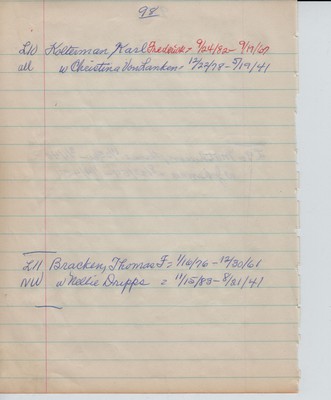 98
L10 Kolterman, Karl Frederick - 9/24/82 - 9/19/67
all w Christina VonLanken - 12/22/78 - 5/19/41
L11 Bracken, Thomas F = 1/16/76 - 12/30/61
NW w Nellie Dripps = 11/15/83 - 8/21/47